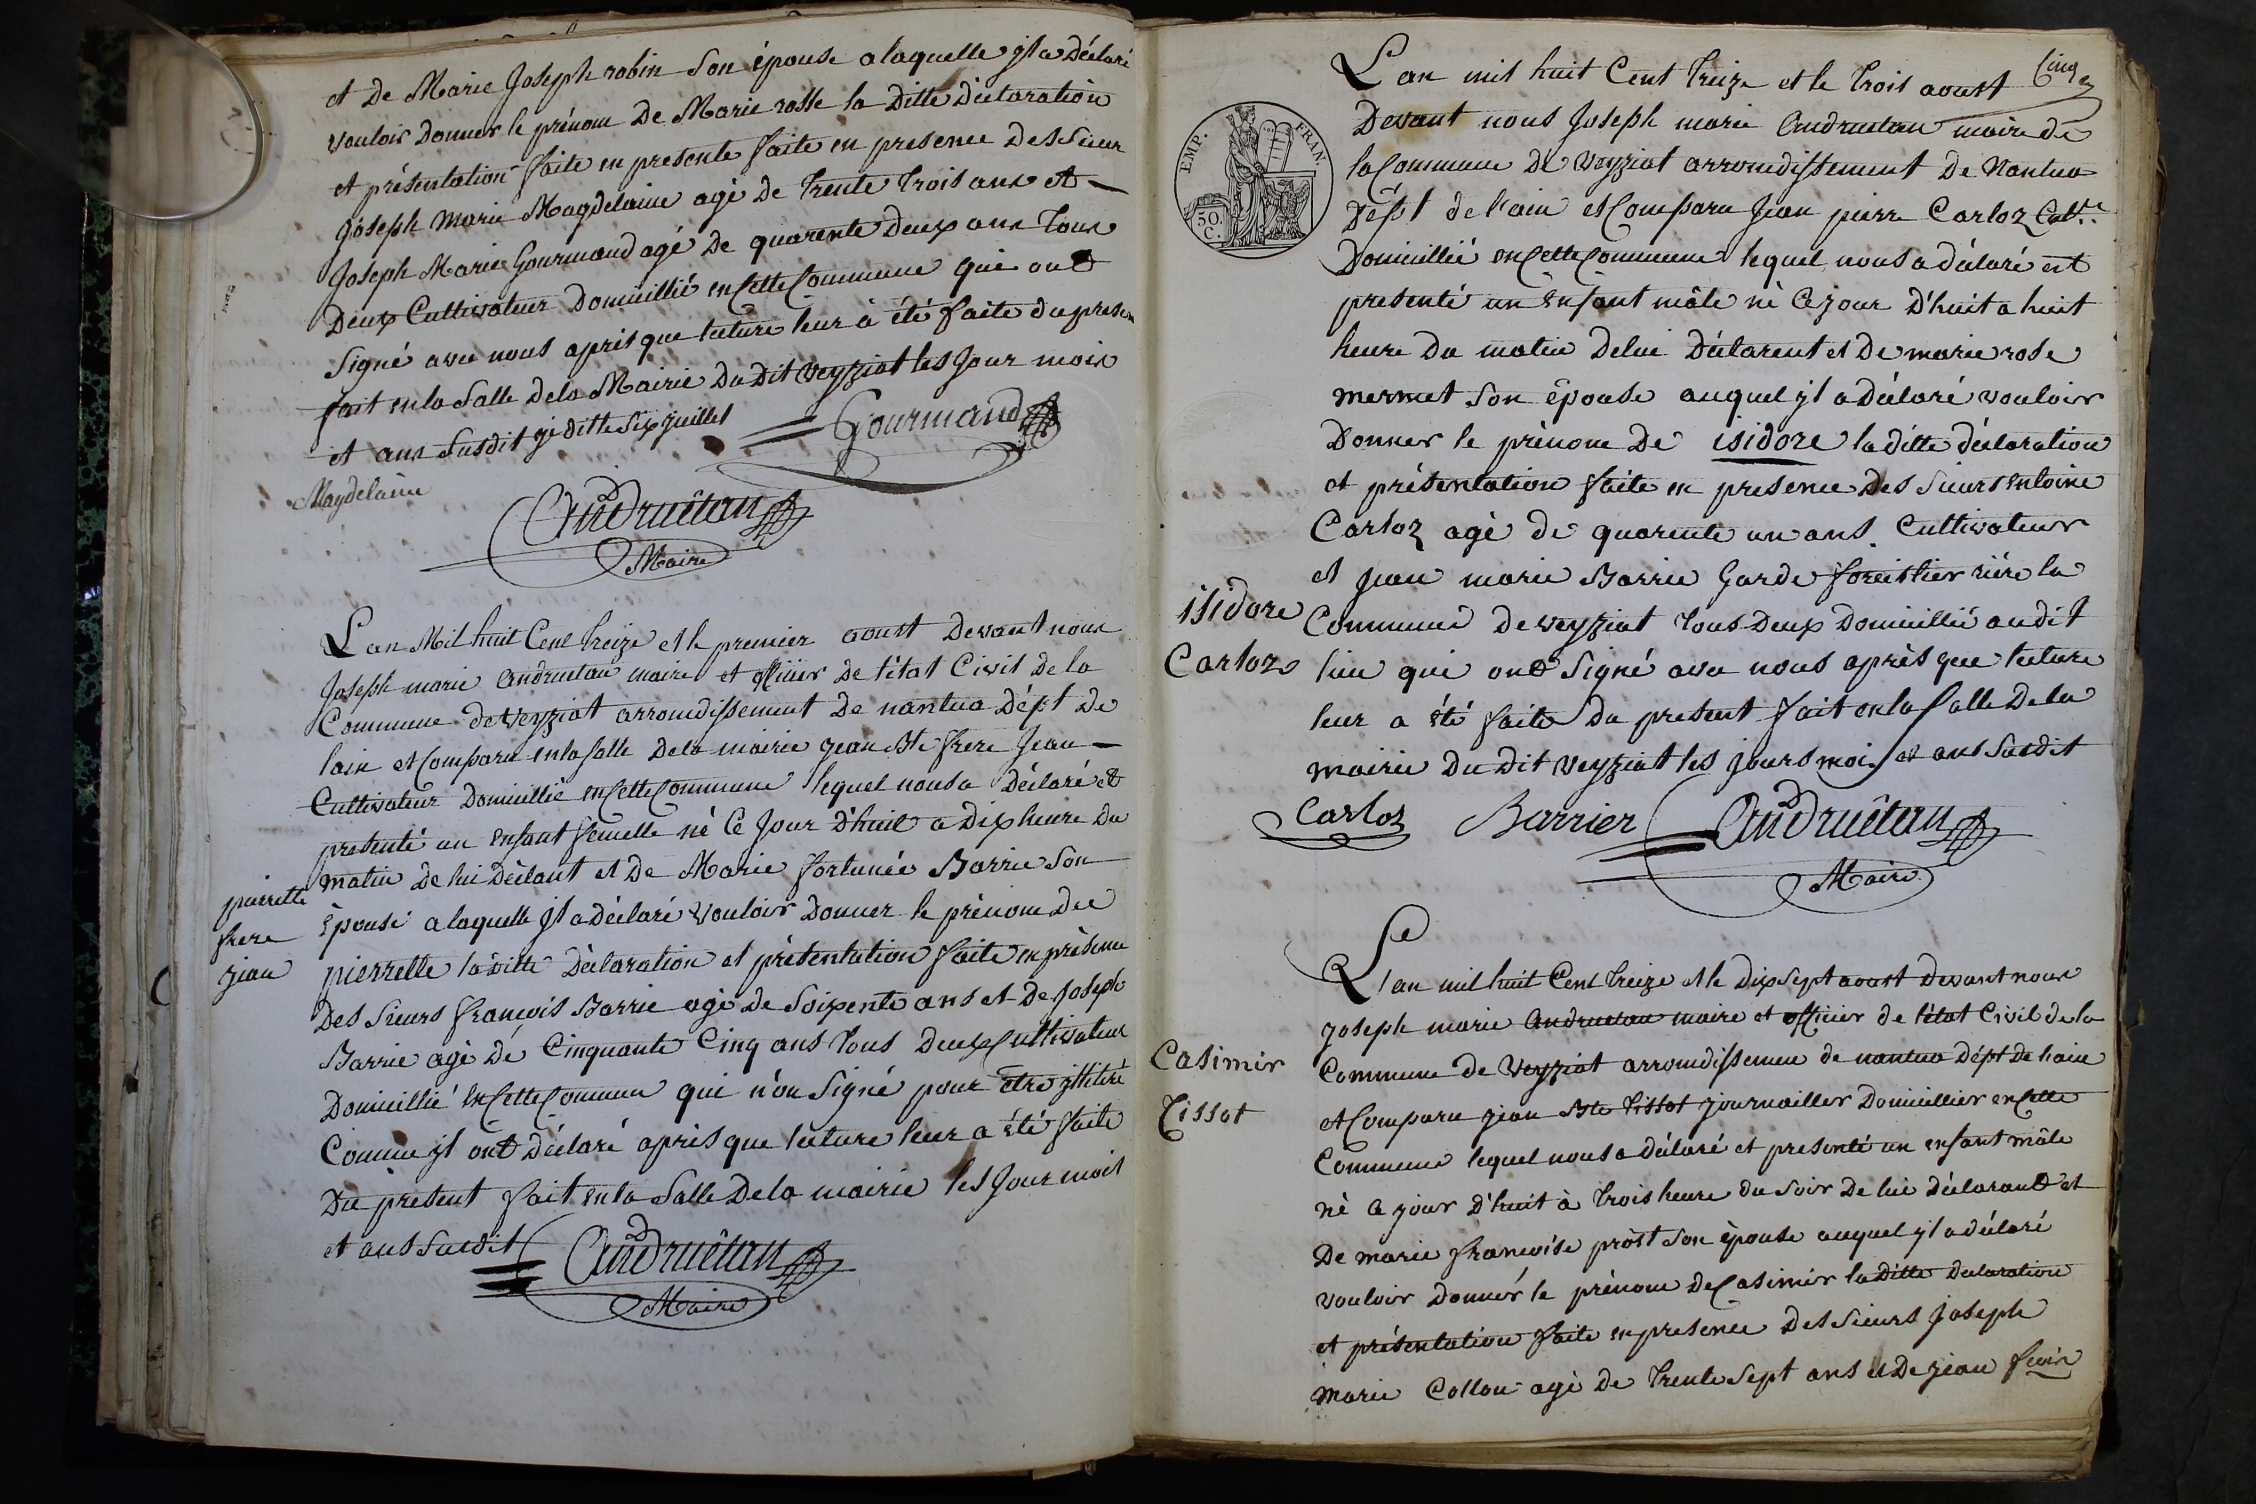 et De Marie Joseph robin Son épouse a laquelle jl a Déclaré
vouloir Donner le prénom De Marie rosse la Ditte déclaration
et présentation faite en presente faite en presence Des Sieur
joseph Marie Magdelaine agé de trente trois ans et
Joseph Marie Gourmand agé De quarente Deux ans tous
Deux Cultivateur Domicillié en Cette Commune qui ont
Signé avec nous apris que lecture leur à été faite du presen
fait en la Salle dela Mairie Du Dit Veyziat les Jour mois
et ans Susdit ditte Six juillet
Gourmand
Magdelaine
Andruétan
Maire
L an Mil huit Cent treize et le premier aoust Devant nous
Joseph marie Andruetan maire et officier De l'état Civil De la
Commune de Veyziat arroudissement De nantua Dépt De
lain et Comparu en la Salle Dela mairie jean Bte frere Jean
Cultivateur Domicillié en Cette Commune lequel nous a Déclaré et
presenté un enfant femelle né Ce Jour D'huit a Dix heure Du
matin de lui Déclant et De Marie fortunée Barrie Son
pierrette
frere
jean
épouse a laquelle Jl a Déclaré vouloir Donner le prénom De
pierrette la ditte Déclaration et présentation faite en présence
Des Sieurs françois Barrie agé de Soixente ans et De Joseph
Barrie agé de Cinquante Cinq ans tous deux Cultivateur
Domicillié en Cette Commun qui n'on Signé pour être jlliteré
Comme jl ont Déclaré apris que lecture leur a été faite
Du present fait en la Salle De la mairie les Jour mois
et ans Susdit
Andruétan
Maire
Cinq
L an mil huit Cent treize et le trois aoust
EMP. FRAN.
50.
C.
Devant nous Joseph marie Andruetan maire de
la Commune de Veyziat arroudissement De Nantua
Dépt de l'ain et Comparu Jean pierre Carloz Cult.r
Domicillié en Cette Commune lequel nous a déclaré et
presenté un enfant mâle né Ce jour D'huit a huit
heure Du matin De lui Déclarent et De marie rose
mermet Son épouse auquel jl a Déclaré vouloir
Donner le prénom De isidore la ditte déclaration
et présentation faite en presence Des Sieurs entoine
Carloz agé de quarente un ans Cultivateur
et jean marie Barrie Garde foreistier riére la
isidore
Carloz
Commune De veyziat tous Deux Domicillié au dit
lieu qui ont Signé avec nous aprés que lecture
leur a été faite Du present fait en la Salle De la
mairie Du Dit Veyziat les jours mois et ans Susdit
Carloz Barrier Andruétan
Maire
L'an mil huit Cent treize et le Dix Sept aoust Devant nous
joseph marie Andruetan maire et officier de l'état Civil de la
Casimir
Tissot
Commune de Veyziat arroudissemen de nantua Dépt de l'ain
et Comparu jean Bte Tissot journailler Domicillier en Cette
Commune lequel nous a déclaré et presenté un enfant mâle
né Ce jour D'huit à trois heure du Soir De lui déclarant et
De marie françoise pròst Son épouse auquel jl a déclaré
vouloir Donner le prénom De Casimir la Ditte Declaration
et présentation faite en presence Des Sieurs Joseph
marie Collon agé De trente Sept ans et De jean